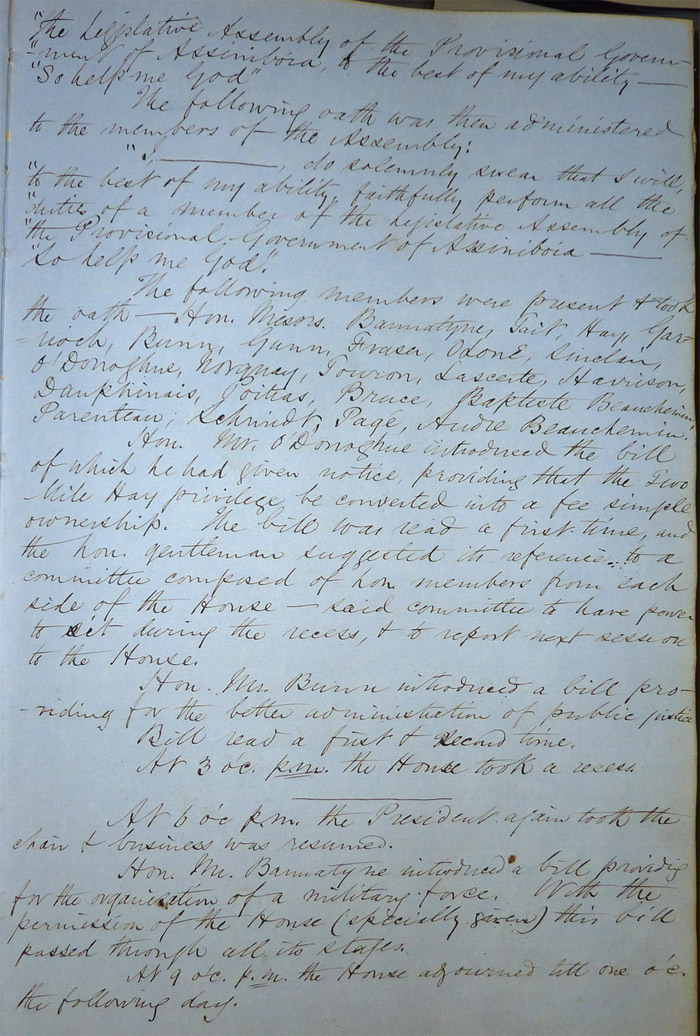 "the Legislative Assembly of the Provisional Govern-
"ment of Assiniboia, to the best of my ability —
"So help me God"
The following oath was then administered
to the members of the Assembly:
"I, ————, do solemnly swear that I will,
"to the best of my ability, faithfully perform all the
"duties of a member of the Legislative Assembly of
"the Provisional Government of Assiniboia ——
"So help me God".
The following members were present & took
the oath — Hon. Messrs. Bannatyne, Tait, Hay, Gar-
-rioch, Bunn, Gunn, Fraser, Ozonè, Sinclair,
O'Donoghue, Norquay, Touron, Lascerte, Harrison,
Dauphinais, Poitras, Bruce, Baptiste Beauchemin,
Parenteau, Schmidt, Pagé, Audre Beauchemin.
Hon. Mr. O'Donoghue introduced the bill
of which he had given notice, providing that the Two
Mile Hay privilege be converted into a fee simple
ownership. The bill was read a first time, and
the hon. gentleman suggested its reference to a
committee composed of hon. members from each
side of the House — said committee to have power
to sit during the recess, & to report next session
to the House.
Hon. Mr. Bunn introduced a bill pro-
-viding for the better administration of public justice
Bill read a first & second time.
At 3 oc. p.m. the House took a recess.
At 6 o'c p.m. the President again took the
chair & business was resumed.
Hon. Mr. Bannatyne introduced a bill providig
for the organization of a military force. With the
permission of the House (specially given) this bill
passed through all its stages.
At 9 o'c. p.m. the House adjourned till one o'c.
the following day.